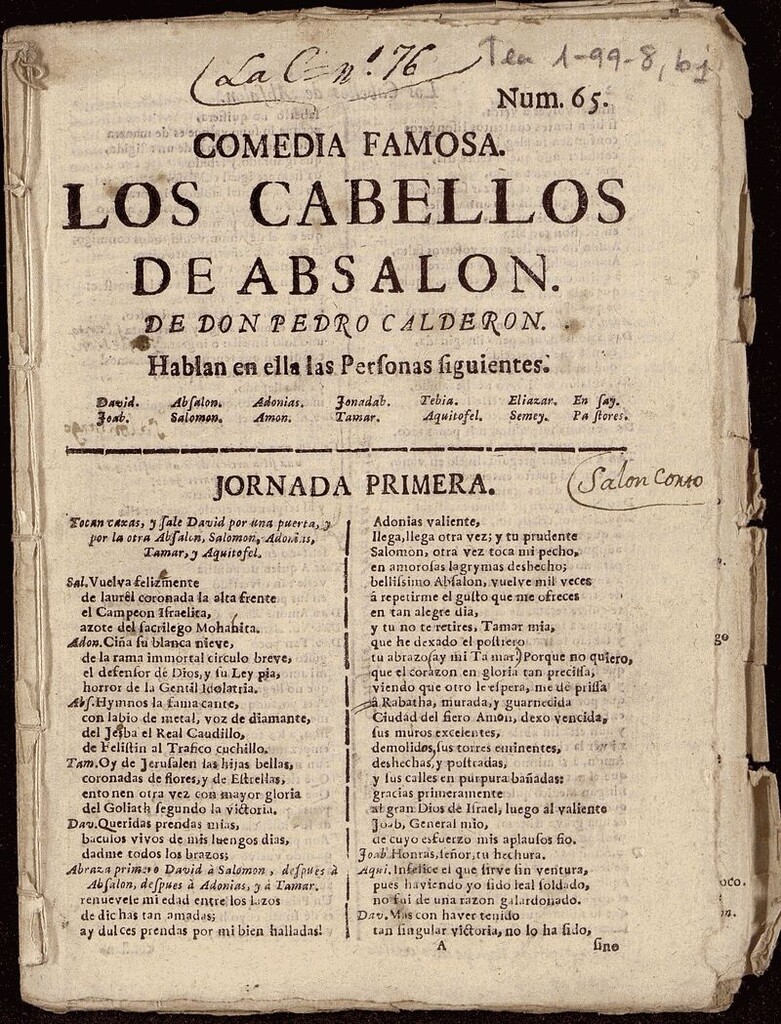 La Cª nº. 76
Tea 1-99-8, b
Num. 65.
COMEDIA FAMOSA.
LOS CABELLOS
DE ABSALON.
DE DON PEDRO CALDERON.
Hablan en ella las Perſonas ſiguientes.
David. Abſalon. Adonias. Jonadab. Tebia. Eliazar. En ſay.
Joab. Salomon. Amon. Tamar. Aquitofel. Semey. Pa ſtores.
JORNADA PRIMERA.
Salon Corto
Tocan caxas, y ſale David por una puerta, y
por la otra Abſalon, Salomon, Adonias,
Tamar, y Aquitofel.
Sal. Vuelva felizmente
de laurèl coronada la alta frente
el Campeon Iſraelita,
azote del ſacrilego Mohabita.
Adon. Ciña ſu blanca nieve,
de la rama immortal circulo breve,
el defenſor de Dios, y ſu Ley pia,
horror de la Gentil Idolatria.
Abſ. Hymnos la fama cante,
con labio de metal, voz de diamante,
del Jeſba el Real Caudillo,
de Feliſtin al Trafico cuchillo.
Tam. Oy de Jeruſalen las hijas bellas,
coronadas de flores, y de Eſtrellas,
entonen otra vez con mayor gloria
del Goliath ſegundo la victoria.
Dav. Queridas prendas mias,
baculos vivos de mis luengos dias,
dadme todos los brazos;
Abraza primero David à Salomon, deſpues à
Abſalon, deſpues à Adonias, y à Tamar.
renuevele mi edad entre los lazos
de dichas tan amadas;
ay dulces prendas por mi bien halladas!
Adonias valiente,
llega, llega otra vez; y tu prudente
Salomon, otra vez toca mi pecho,
en amoroſas lagrymas deshecho;
belliſſimo Abſalon, vuelve mil veces
à repetirme el guſto que me ofreces
en tan alegre dia,
y tu no te retires, Tamar mia,
que he dexado el poſtrero
tu abrazo (ay mi Tamar!) Porque no quiero,
que el corazon en gloria tan preciſſa,
viendo que otro le eſpera, me de priſſa
à Rabatha, murada, y guarnecida
Ciudad del fiero Amon, dexo vencida,
ſus muros excelentes,
demolidos, ſus torres eminentes,
deshechas, y poſtradas,
y ſus calles en purpura bañadas:
gracias primeramente
al gran Dios de Iſrael, luego al valiente
Joab, General mio,
de cuyo esfuerzo mis aplauſos fio.
Joab. Honras, ſeñor, tu hechura.
Aqui. Infelice el que ſirve ſin ventura,
pues haviendo yo ſido leal ſoldado,
no fui de una razon galardonado.
Dav. Mas con haver tenido
tan ſingular victoria, no lo ha ſido,
A
ſino